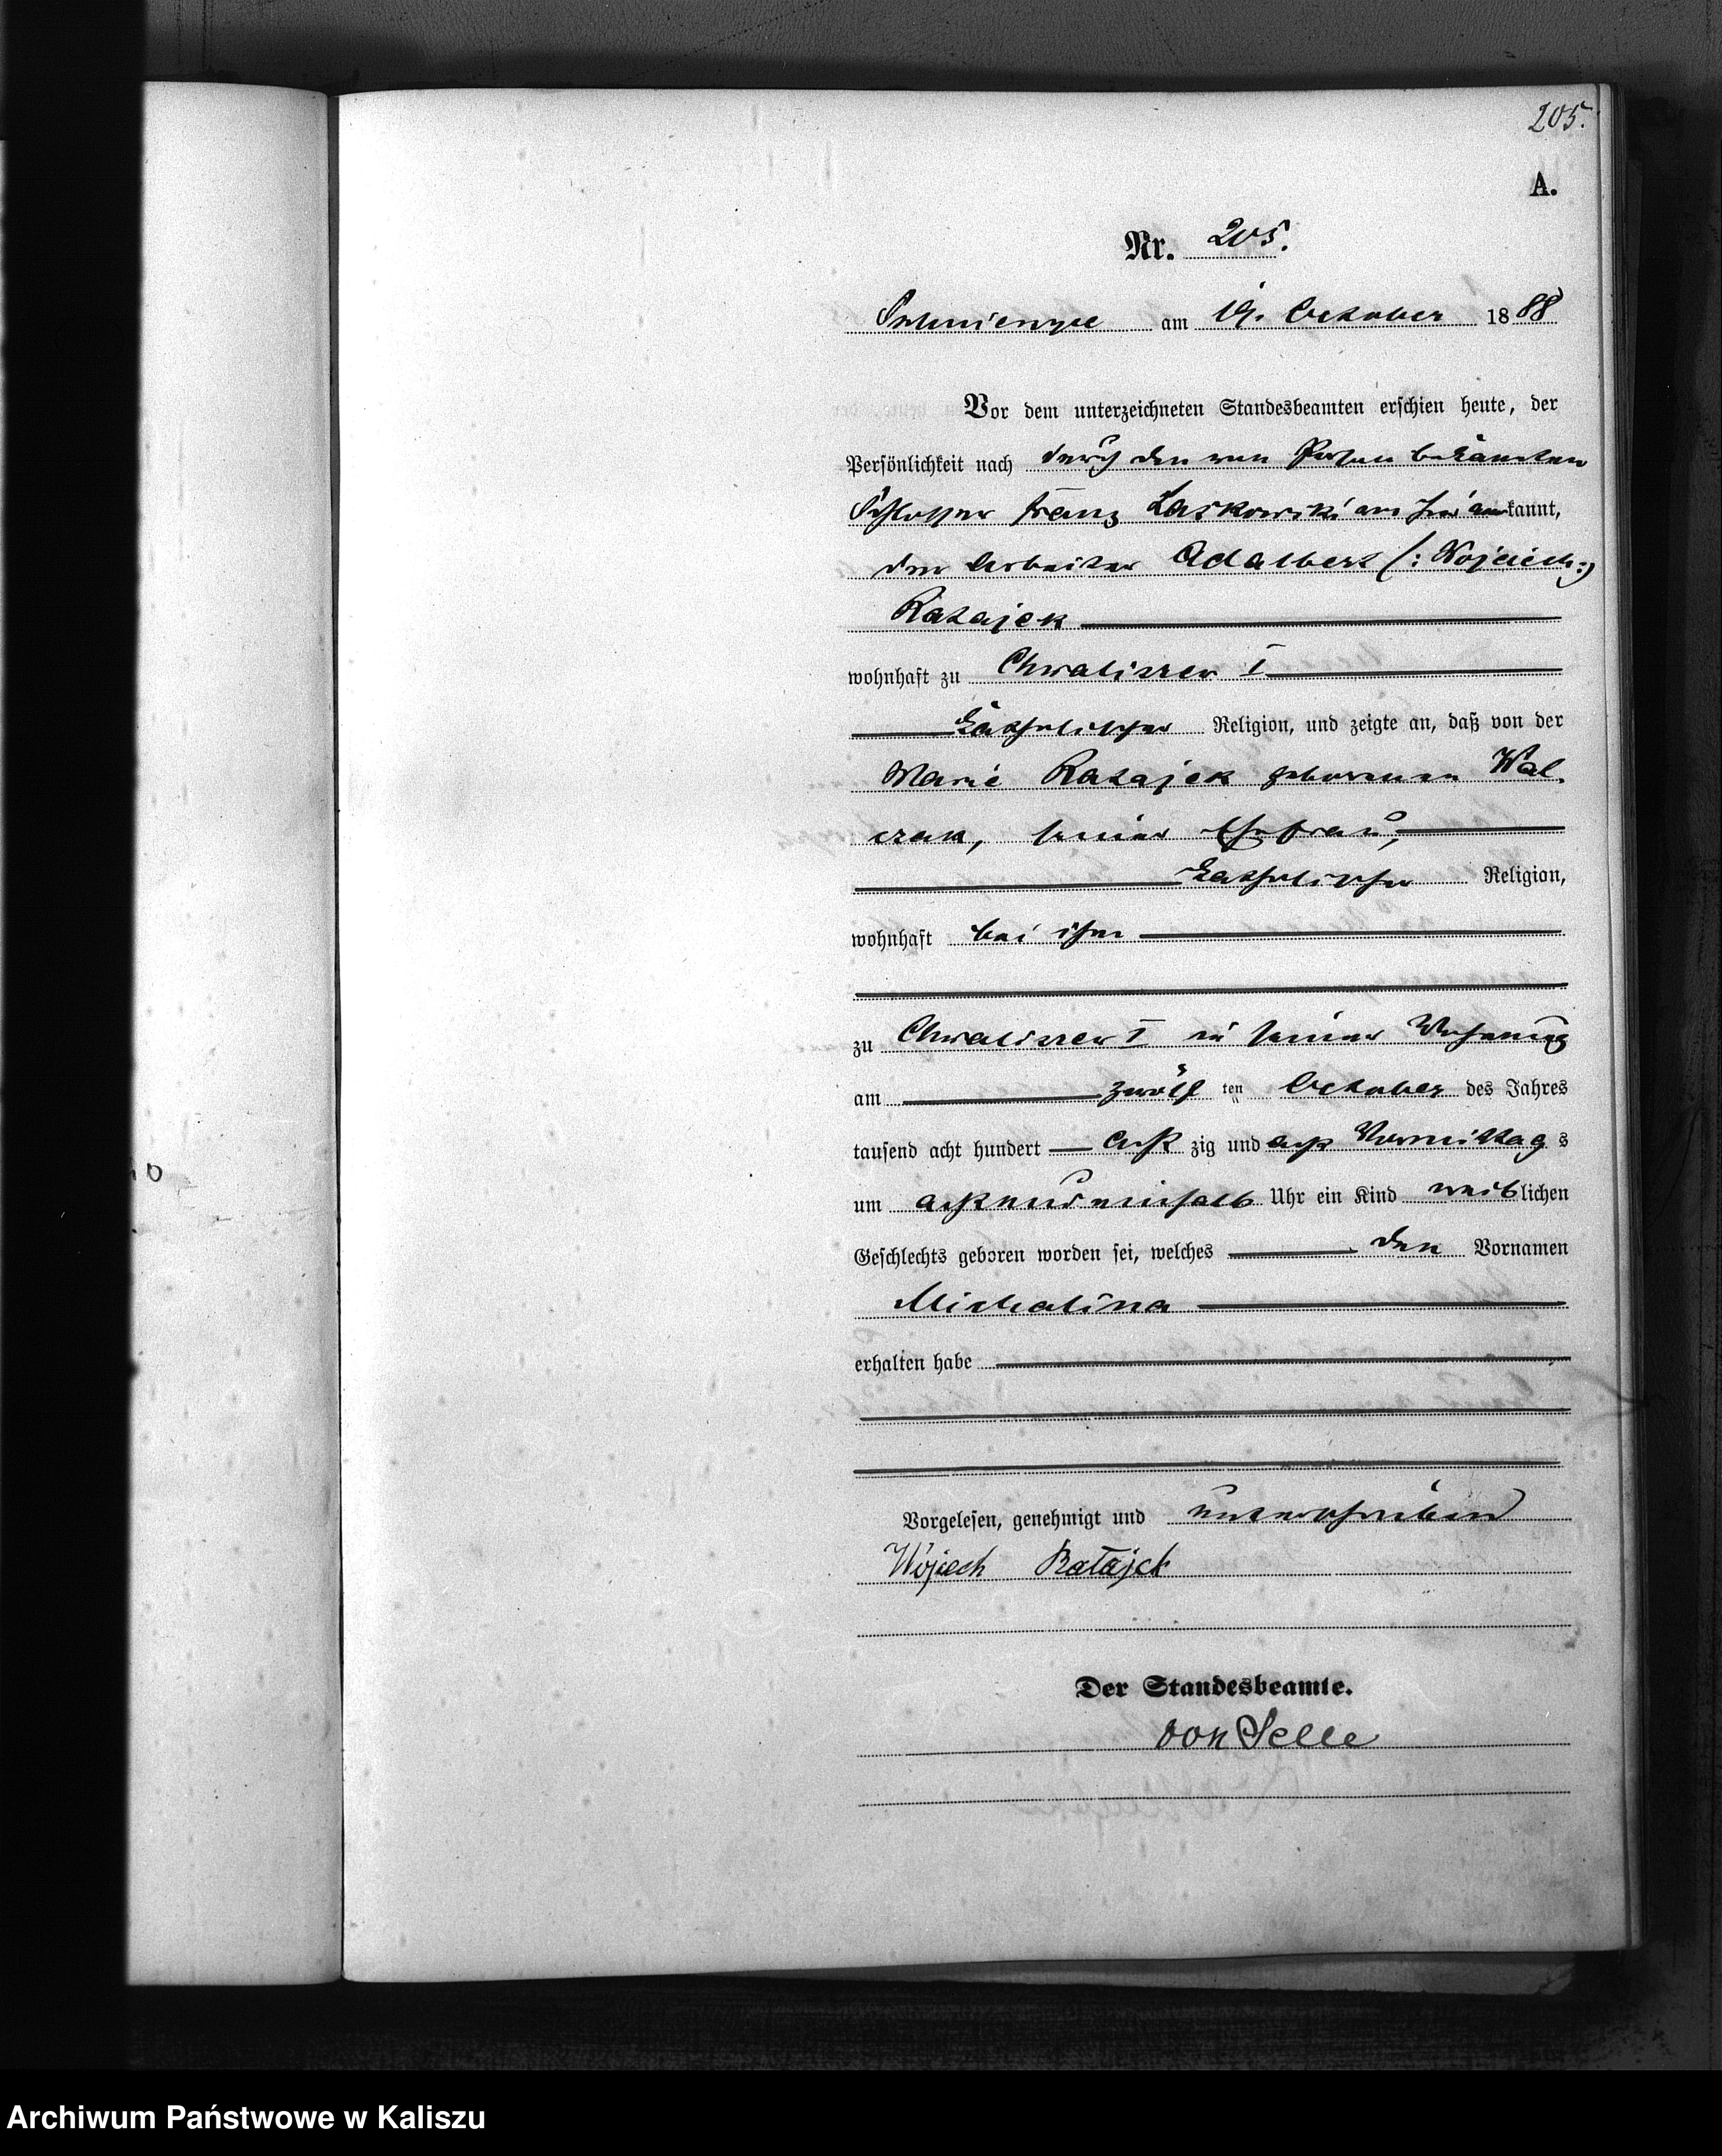 205.
A.
Nr. 205.
am 19. October 1888
Vor dem unterzeichneten Standesbeamten erschien heute, der
Persönlichkeit nach durch den von Person bekannten
Schlosser Franz Laskowski von hier anerkannt,
der Arbeiter Adalbert (: Wojciech :)
Ratajek
wohnhaft zu Chwaliszew I
katholischer Religion, und zeigte an, daß von der
Marie Ratajek geborenen Wal-
czak, seiner Ehefrau,
katholischer Religion,
wohnhaft bei ihm
zu Chwaliszew I in seiner Wohnung
am zwölf ten October des Jahres
tausend acht hundert acht zig und acht Vormittag s
um acht und einhalb Uhr ein Kind weiblichen
Geschlechts geboren worden sei, welches den Vornamen
Michalina
erhalten habe
Vorgelesen, genehmigt und unterschrieben
Wojciech Ratajek
Der Standesbeamte.
von Selle
Archiwum Państwowe w Kaliszu